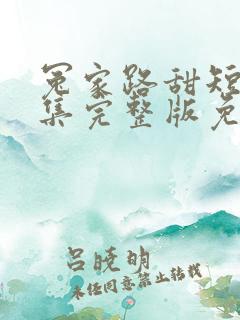 冤家路甜短
集完整版免
吕晓明
未经同意禁止转载